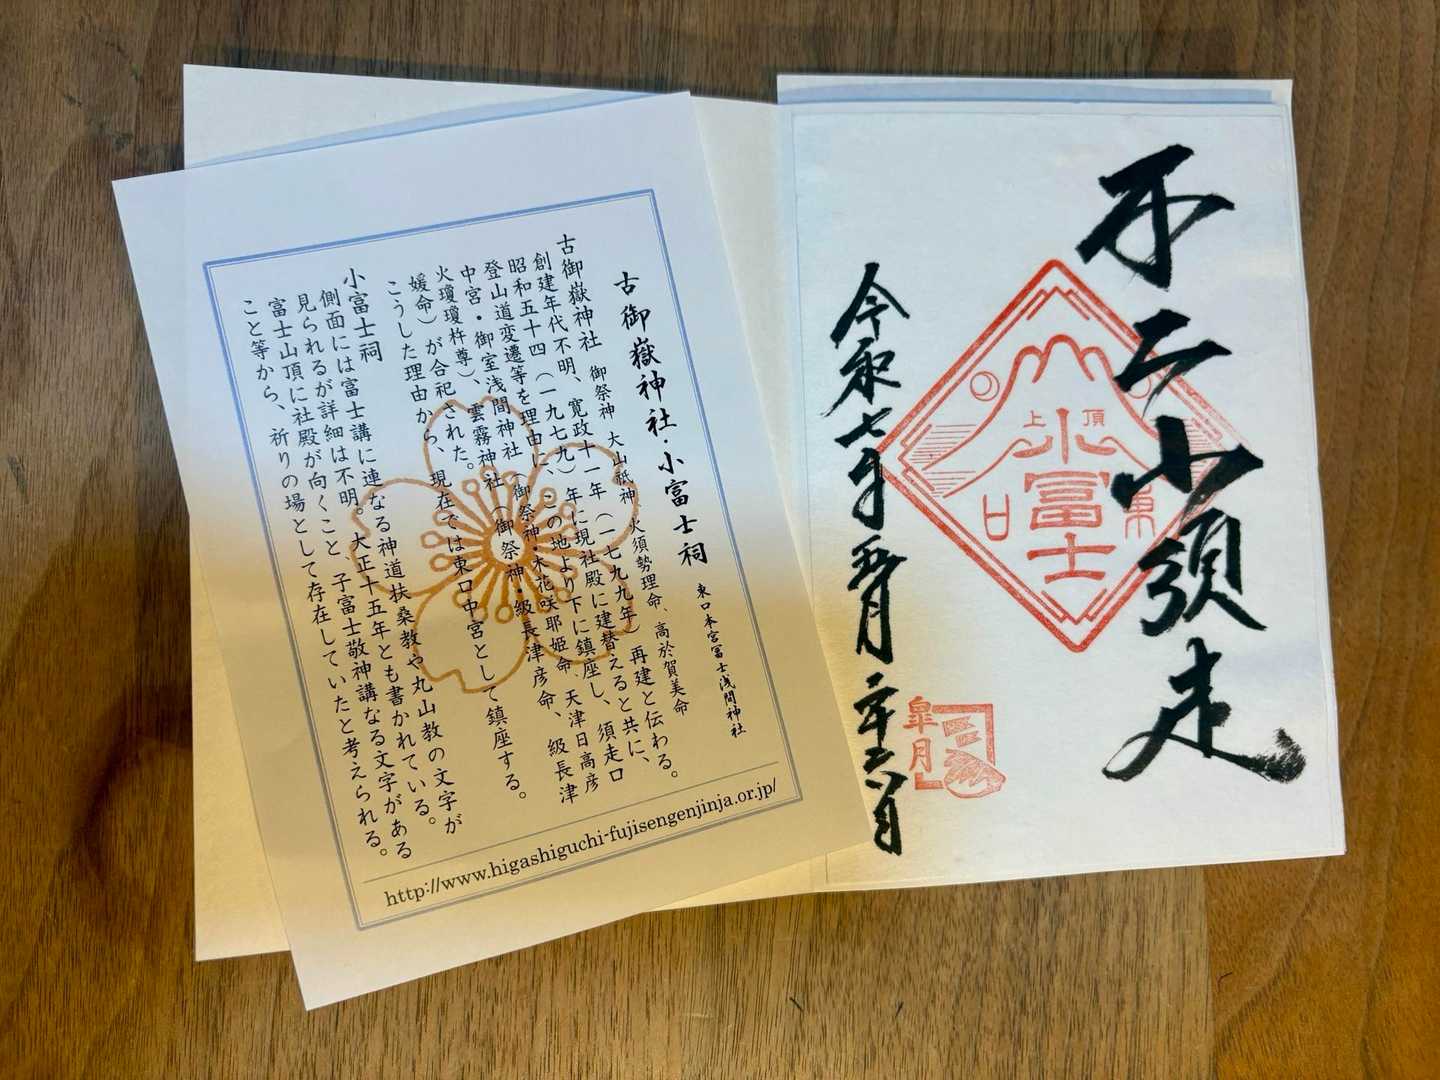 不二山須走
上 頂
小富士
東
口
令和七年五月二十六日
皐月
古御嶽神社・小富士祠 東口本宮冨士浅間神社
古御嶽神社 御祭神 大山祗神、火須勢理命、高於賀美命
創建年代不明、寛政十一年（一七九九年）再建と伝わる。
昭和五十四（一九七九）年に現社殿に建替えると共に、
登山道変遷等を理由に、この地より下に鎮座し、須走口
中宮・御室浅間神社（御祭神・木花咲耶姫命、天津日高彦
火瓊瓊杵尊）、雲霧神社（御祭神・級長津彦命、級長津
媛命）が合祀された。
こうした理由から、現在では東口中宮として鎮座する。
小富士祠
側面には富士講に連なる神道扶桑教や丸山教の文字が
見られるが詳細は不明。大正十五年とも書かれている。
富士山頂に社殿が向くこと、子富士敬神講なる文字がある
こと等から、祈りの場として存在していたと考えられる。
http://www.higashiguchi-fujisengenjinja.or.jp/